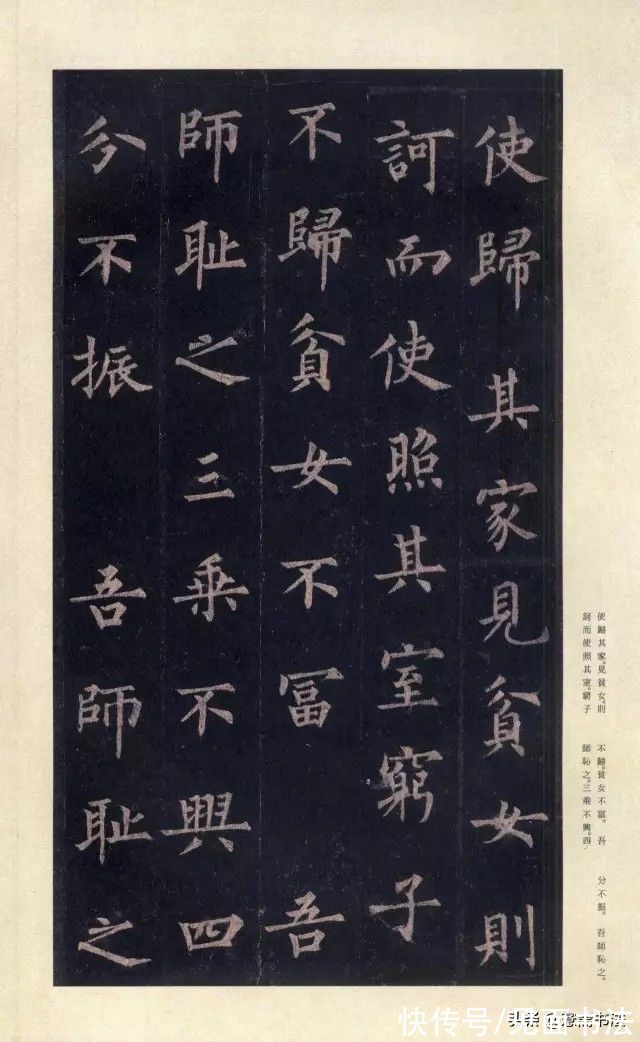 使歸其家見貧女則
訶而使照其室窮子
不歸貧女不冨吾
師耻之三乘不興四
分不振吾師耻之
使歸其家。見貧女。則
訶而使照其室。窮子
不歸。貧女不富。吾
師恥之。三乘不興。四
分不振。吾師恥之。
快传号/见面书法